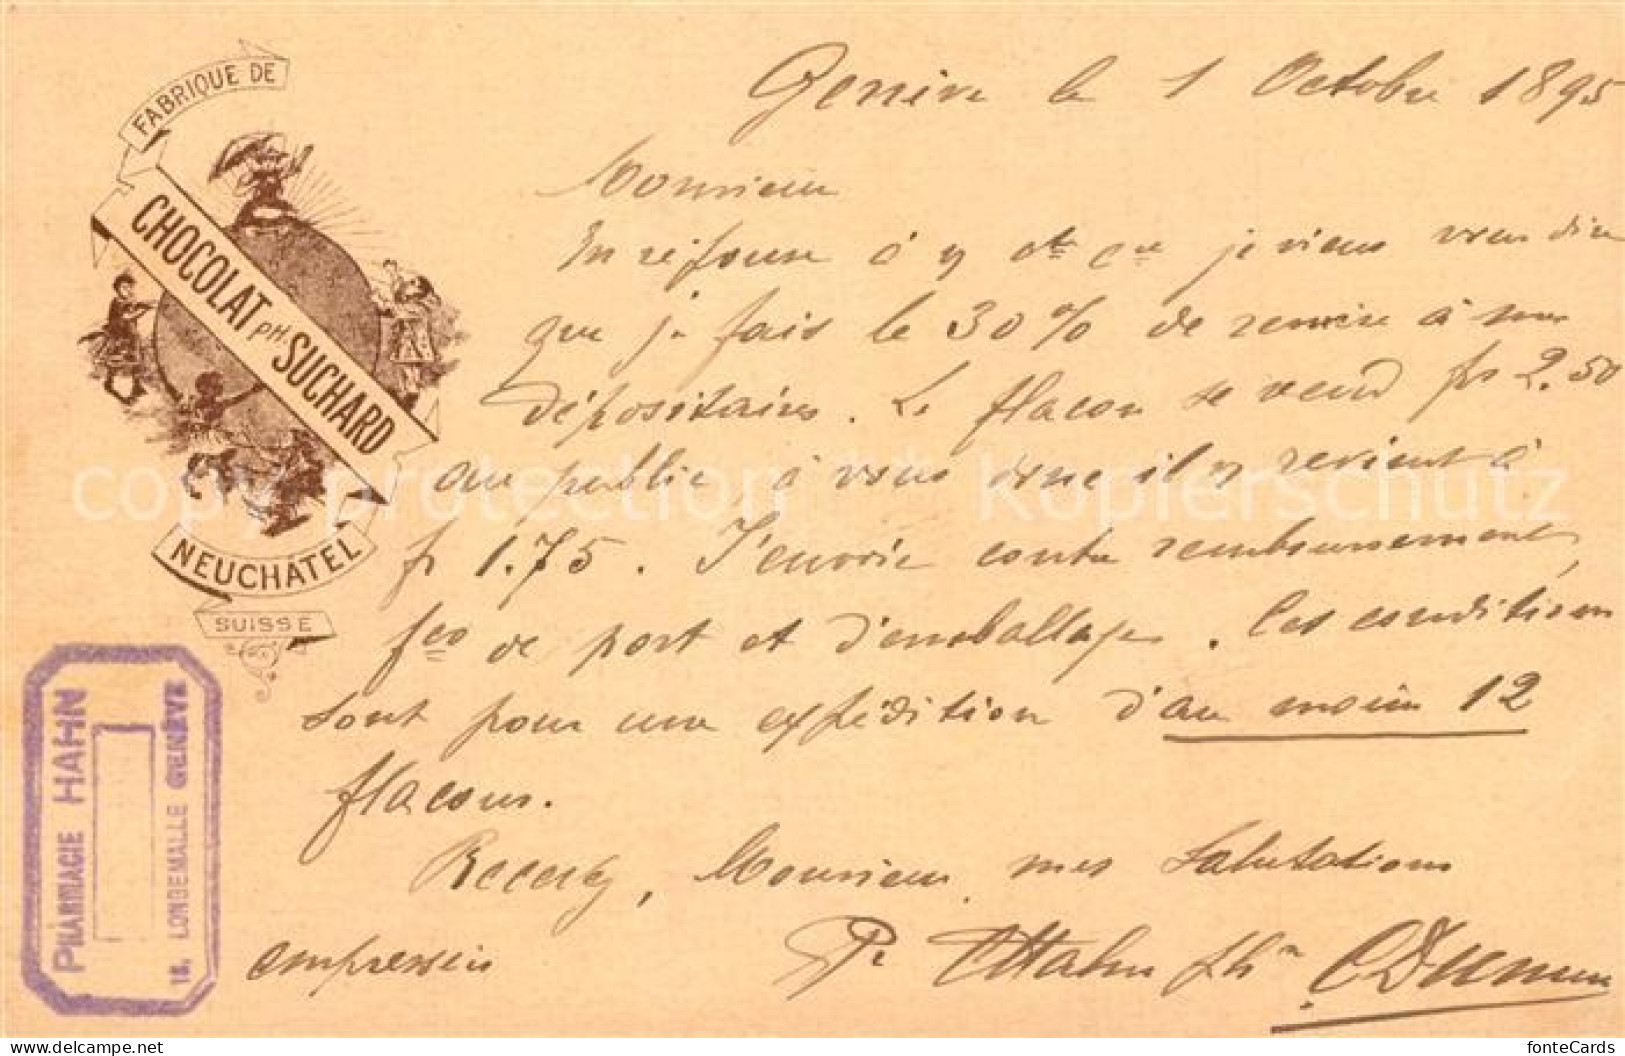 FABRIQUE DE
CHOCOLAT PH. SUCHARD
NEUCHÂTEL
SUISSE
PHARMACIE HAHN
18, LONGEMALLE GENÈVE
Genève le 1 Octobre 1895
Monsieur
En réponse à v/ cte cre je viens vous dire
que je fais le 30% de remise à mes
dépositaires. Le flacon se vend frs 2.50
au public, à vous donc il y revient à
fr 1.75. J'envoie contre remboursement,
fco de port et d'emballage. Ces conditions
sont pour une expédition d'au moins 12
flacons.
Recevez, Monsieur, mes salutations
empressées
Pr Hahn phn
copy protection ** kopierschutz
www.delcampe.net
fonteCards